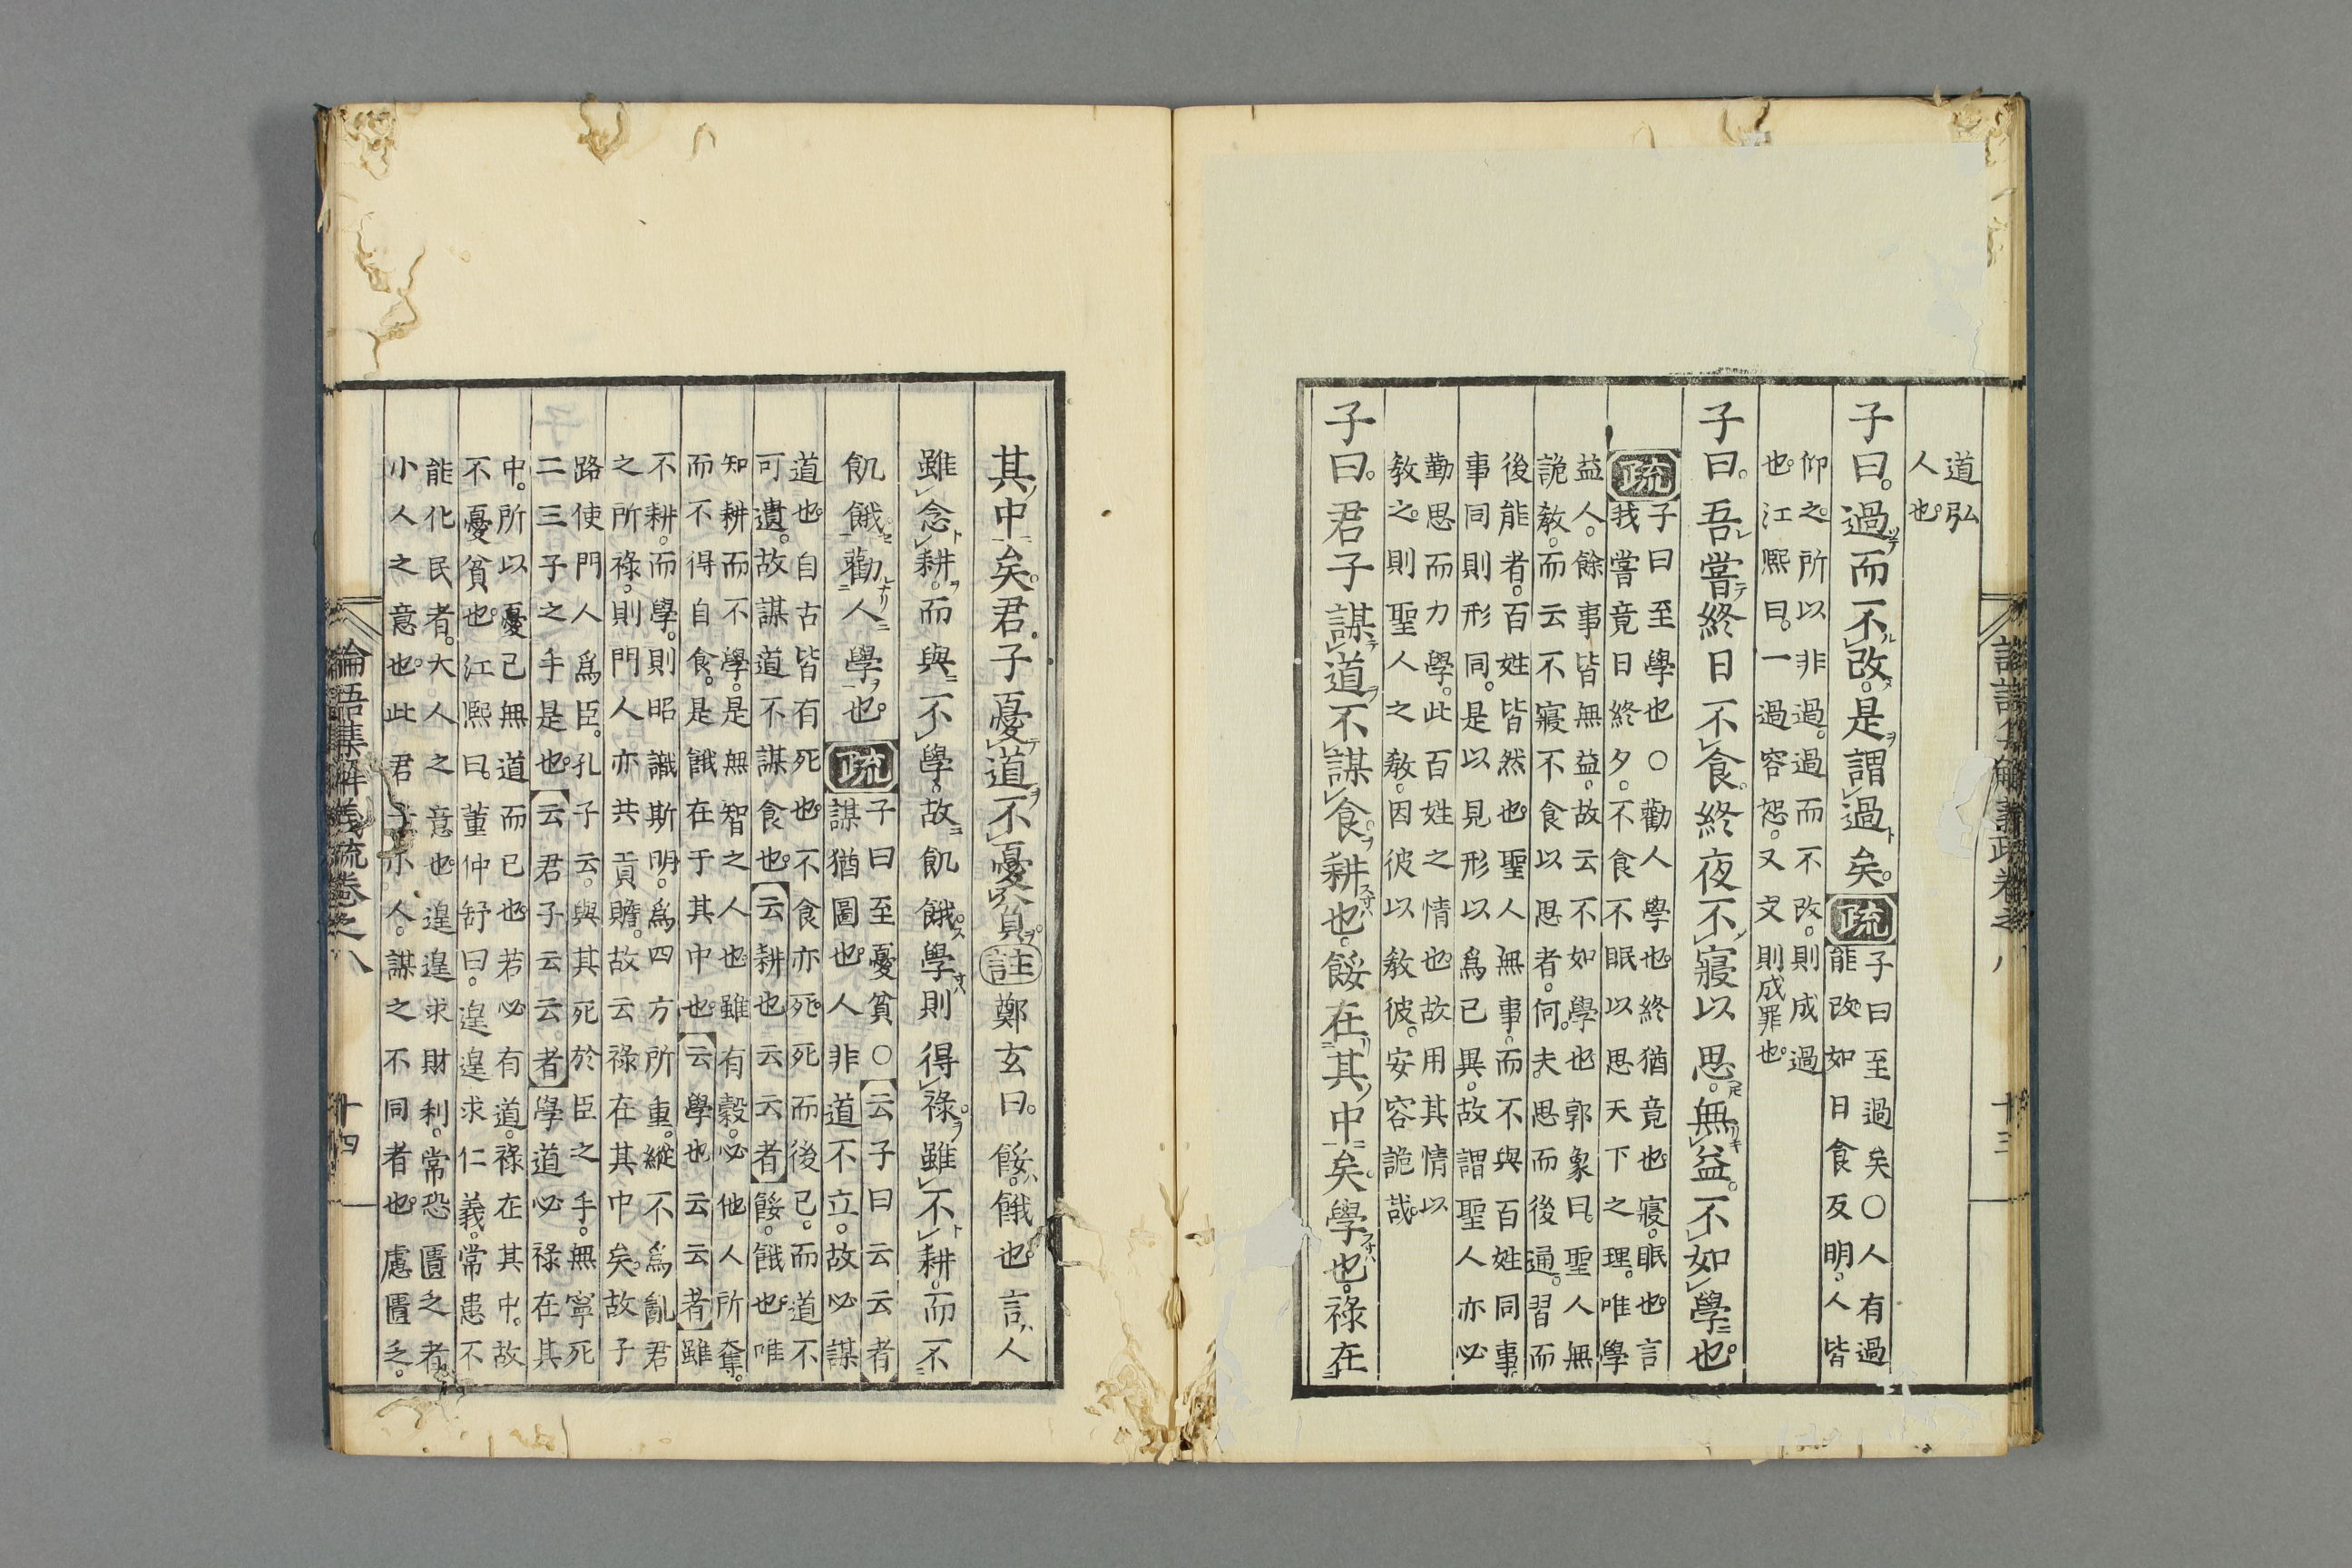 道弘
人也。
子曰。過而不改。是謂過矣。疏子曰至過矣○人有過
能改如日食反明。人皆
仰之。所以非過。過而不改。則成過
也。江熙曰。一過容恕。又文則成罪也。
子曰。吾嘗終日不食。終夜不寢以思。無益。不如學也。
疏子曰至學也○勸人學也。終猶竟也。寢。眠也。言
我嘗竟日終夕。不食不眠以思天下之理。唯學
益人。餘事皆無益。故云不如學也。郭象曰。聖人無
詭教。而云不寢不食以思者。何。夫思而後通。習而
後能者。百姓皆然也。聖人無事。而不與百姓同事。
事同則形同。是以見形以爲己異。故謂聖人亦必
勤思而力學。此百姓之情也。故用其情以
教之。則聖人之教。因彼以教彼。安容詭哉。
子曰。君子謀道不謀食。耕也。餒在其中矣。學也。祿在
其中矣。君子憂道不憂貧。註鄭玄曰。餒。餓也。言人
雖念耕。而不學。故飢餓。學則得祿。雖不耕。而不
飢餓。勸人學也。疏子曰至憂貧○云子曰云云者
謀猶圖也。人非道不立。故必謀
道也。自古皆有死也。不食亦死。死而後已。而道不
可遺。故謀道不謀食也。云耕也云云者餒。餓也。唯
知耕而不學。是無智之人也。雖有穀。必他人所奪。
而不得自食。是餓在于其中也。云學也云云者雖
不耕。而學。則昭識斯明。爲四方所重。縱不爲亂君
之所祿。則門人亦共貢贍。故云祿在其中矣。故子
路使門人爲臣。孔子云。與其死於臣之手。無寧死
二三子之手是也。云君子云云。者學道必祿在其
中。所以憂己無道而已也。若必有道。祿在其中。故
不憂貧也。江熙曰。董仲舒曰。遑遑求仁義。常患不
能化民者。大人之意也。遑遑求財利。常恐匱乏者
小人之意也。此君子亦人。謀之不同者也。慮匱乏。
論語集解義疏卷之八
十四